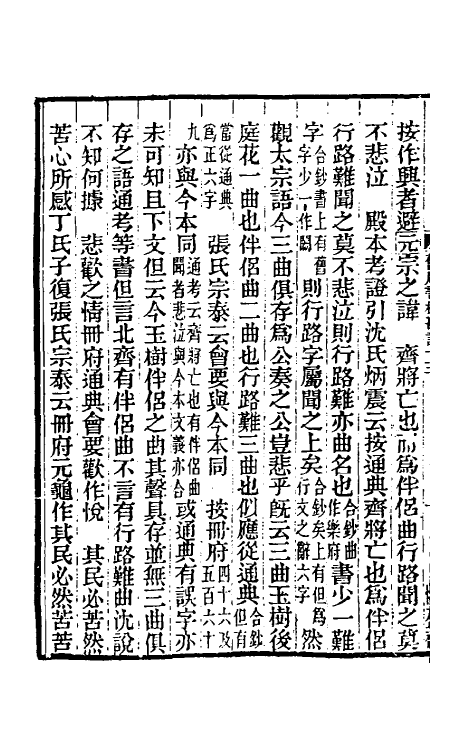 按作興者避元宗之諱　齊將亡也而爲伴侶曲行路聞之莫
不悲泣　殿本考證引沈氏炳震云按通典齊將亡也爲伴侶
行路難聞之莫不悲泣則行路難亦曲名也合鈔曲作樂府書少一難
字合鈔書上有舊字少一作闕則行路字屬聞之上矣合鈔矣上有但爲行文之辭六字然
觀太宗語今三曲俱存爲公奏之公豈悲乎旣云三曲玉樹後
庭花一曲也伴侶曲二曲也行路難三曲也似應從通典合鈔但有
當從通典爲正六字　張氏宗泰云會要與今本同　按冊府四十六及五百六十
九亦與今本同通考云齊將亡也有伴侶曲聞者悲泣與今本文義亦合或通典有誤字亦
未可知且下文但云今玉樹伴侶之曲其聲具存並無三曲俱
存之語通考等書但言北齊有伴侶曲不言有行路難曲沈說
不知何據　悲歡之情冊府通典會要歡作悅　其民必苦然
苦心所感丁氏子復張氏宗泰云冊府元龜作其民必然苦苦